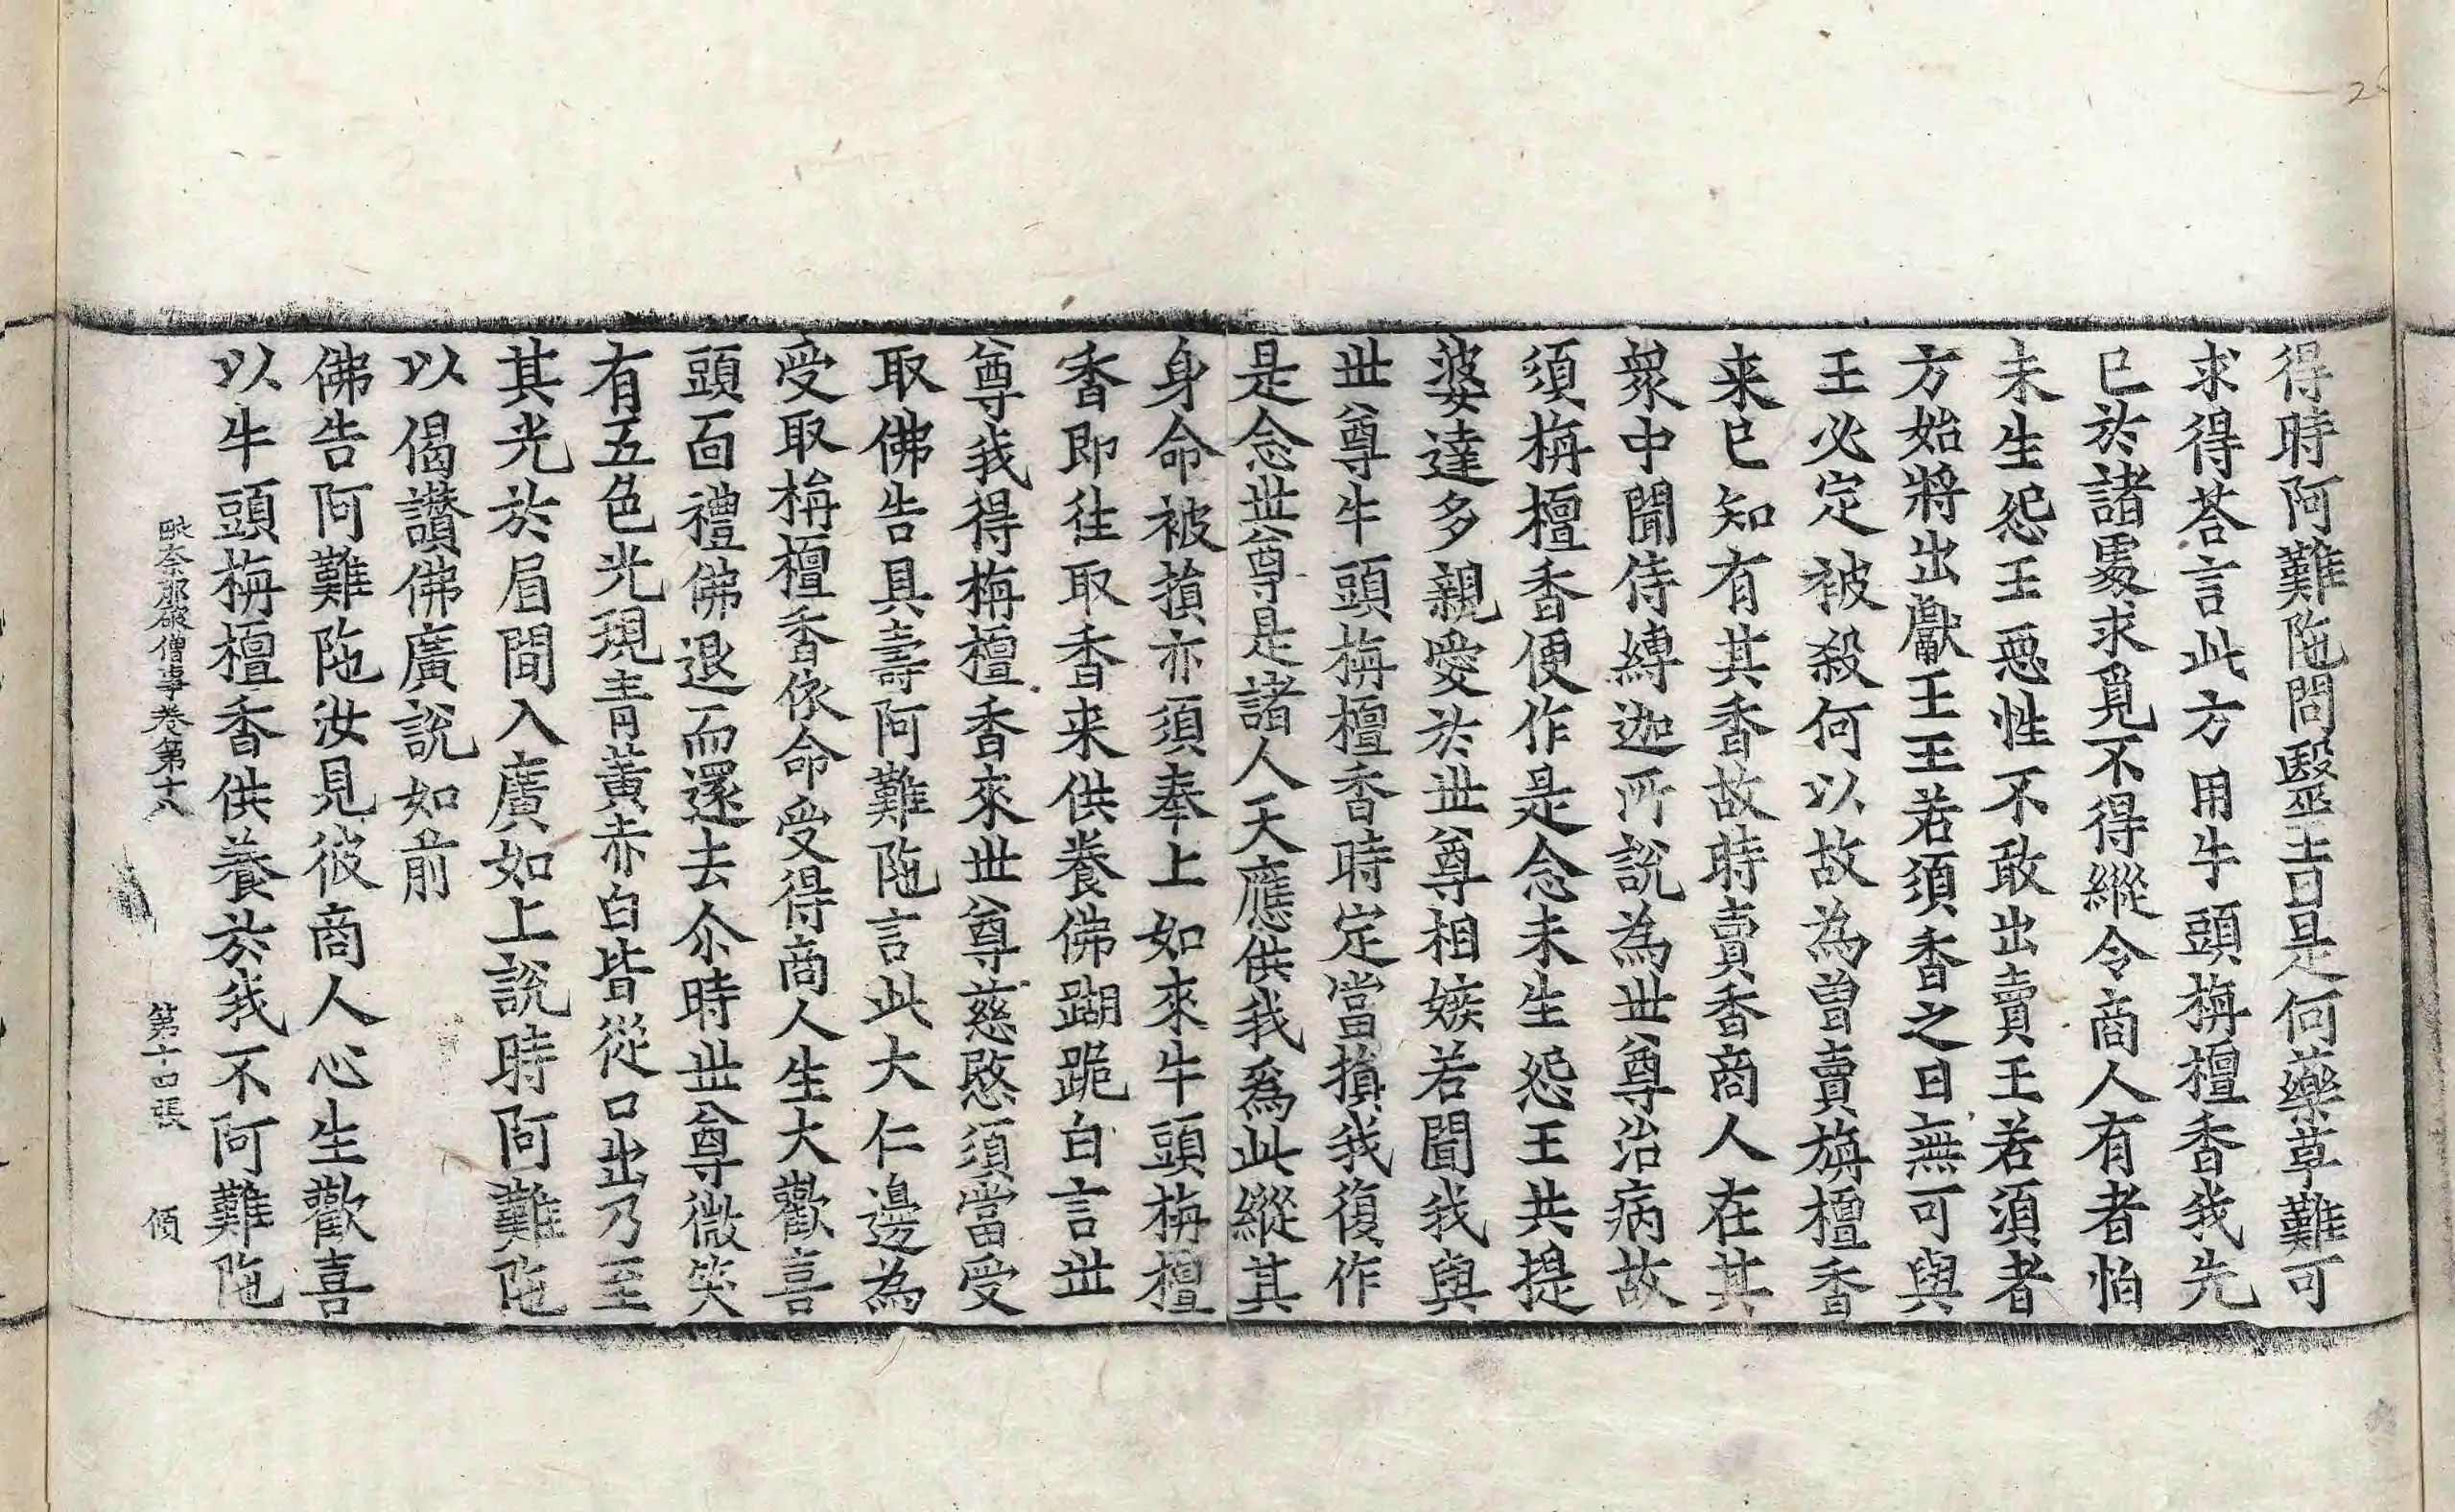 得時阿難陁問醫言是何藥草難可
求得荅言此方用牛頭栴檀香我先
已於諸處求覓不得縱令商人有者怕
未生怨王惡性不敢出賣王若須者
方始將出獻王王若須香之日無可與
王必定被殺何以故為曾賣旃檀香
来已知有其香故時賣香商人在其
衆中聞侍縛迦所說為世尊治病故
須栴檀香便作是念未生怨王共提
婆達多親愛於世尊相嫉若聞我與
世尊牛頭栴檀香時定當損我復作
是念世尊是諸人天應供我爲此縱其
身命被損亦須奉上如來牛頭栴檀
香即往取香来供養佛蹦跪白言世
尊我得栴檀香來世尊慈愍須當受
取佛告具壽阿難陁言此大仁邊為
受取栴檀香依命受得商人生大歡喜
頭面禮佛退而還去尒時世尊微笑
有五色光現青黃赤白皆從口出乃至
其光於眉間入廣如上說時阿難陁
以偈讚佛廣說如前
佛告阿難陁汝見彼商人心生歡喜
以牛頭栴檀香供養於我不阿難陁
毗奈耶破僧事卷第十八 第十四張 傾